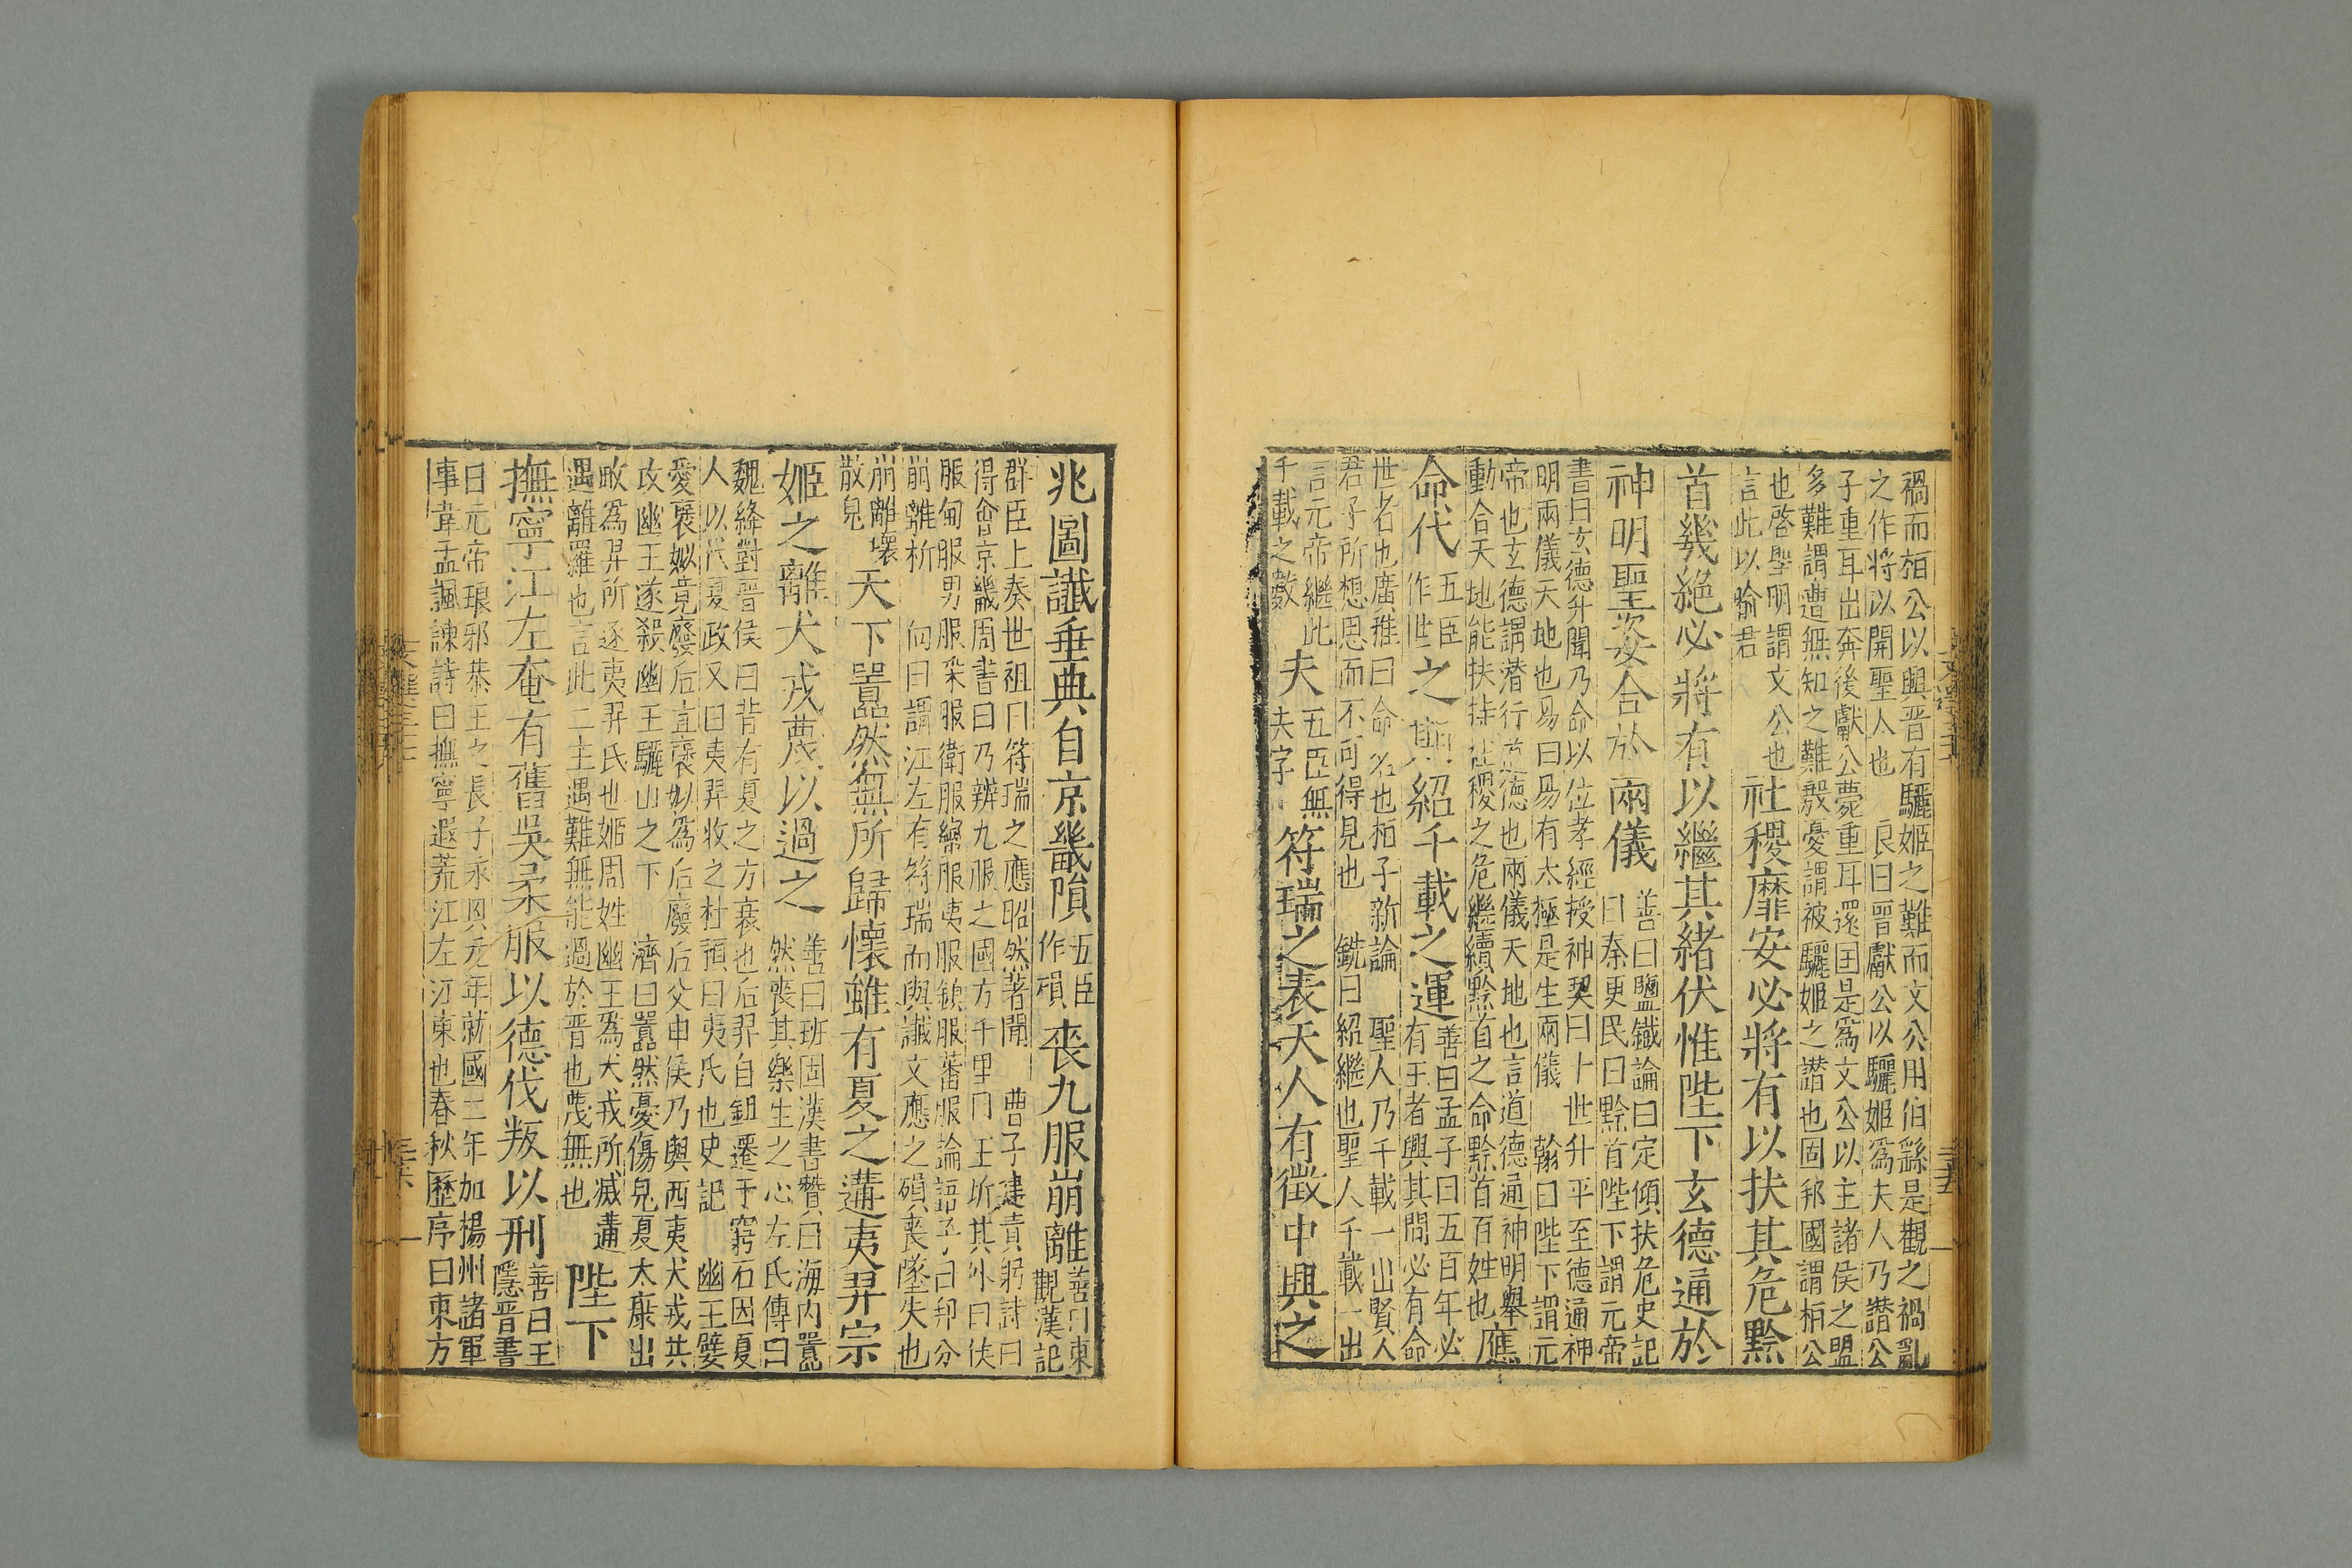 禍而桓公以興晋有驪姬之難而文公用伯繇是觀之禍亂
之作將以開聖人也 良曰晋獻公以驪姬爲夫人乃譖公
子重耳出奔後獻公薨重耳還国是爲文公以主諸侯之盟
多難謂遭無知之難殷憂謂被驪姬之譖也固邦國謂桓公
也啓聖明謂文公也
言此以喻君
社稷靡安必將有以扶其危黔
首幾絕必將有以繼其緒伏惟陛下玄德通於
神明聖姿合於兩儀
善曰鹽鐵論曰定傾扶危史記
曰秦更民曰黔首陛下謂元帝
書曰玄德升聞乃命以位孝經授神契曰十世升平至德通神
明兩儀天地也易曰易有太極是生兩儀 翰曰陛下謂元
帝也玄德謂潜行道德也兩儀天地也言道德通神明舉
動合天地能扶持社稷之危繼續黔首之命黔首百姓也
應
命代
五臣
作世
之期紹千載之運
善曰孟子曰五百年必
有王者興其間必有命
世者也廣雅曰命名也桓子新論 聖人乃千載一出賢人
君子所想思而不可得見也 銑曰紹繼也聖人千載一出
言元帝繼此
千載之數
夫
五臣無
夫字
符瑞之表天人有徵中興之
兆圖讖垂典自京畿隕
五臣
作殞
喪九服崩離
善曰東
觀漢記
群臣上奏世祖曰符瑞之應昭然著聞 曹子建責躬詩曰
得會京畿周書曰乃辨九服之國方千里曰王圻其外曰侯
服甸服男服采服衛服蠻服夷服鎮服蕃服論語子曰邦分
崩離析 向曰謂江左有符瑞而與讖文應之殞喪墜失也
崩離壞
散皃
天下嚚然無所歸懷雖有夏之遘夷羿宗
姬之離犬戎蔑以過之
善曰班固漢書贊曰海内嚚
然喪其樂生之心左氏傳曰
魏絳對晋侯曰昔有夏之方衰也后羿自鉏遷于窮石因夏
人以代夏政又曰夷羿收之杜預曰夷氏也史記 幽王嬖
愛褒姒竟廢后宜褒姒爲后廢后父申侯乃與西夷犬戎共
攻幽王遂殺幽王驪山之下 濟曰嚚然憂傷皃夏太康出
畋爲羿所逐夷羿氏也姬周姓幽王爲犬戎所滅遘
遇離羅也言此二主遇難無能過於晋也蔑無也
陛下
撫寧江左奄有舊吳柔服以德伐叛以刑
善曰王
隱晋書
曰元帝琅邪恭王之長子永興元年就國二年加揚州諸軍
事韋孟諷諫詩曰撫寧遐荒江左江東也春秋歷序曰東方